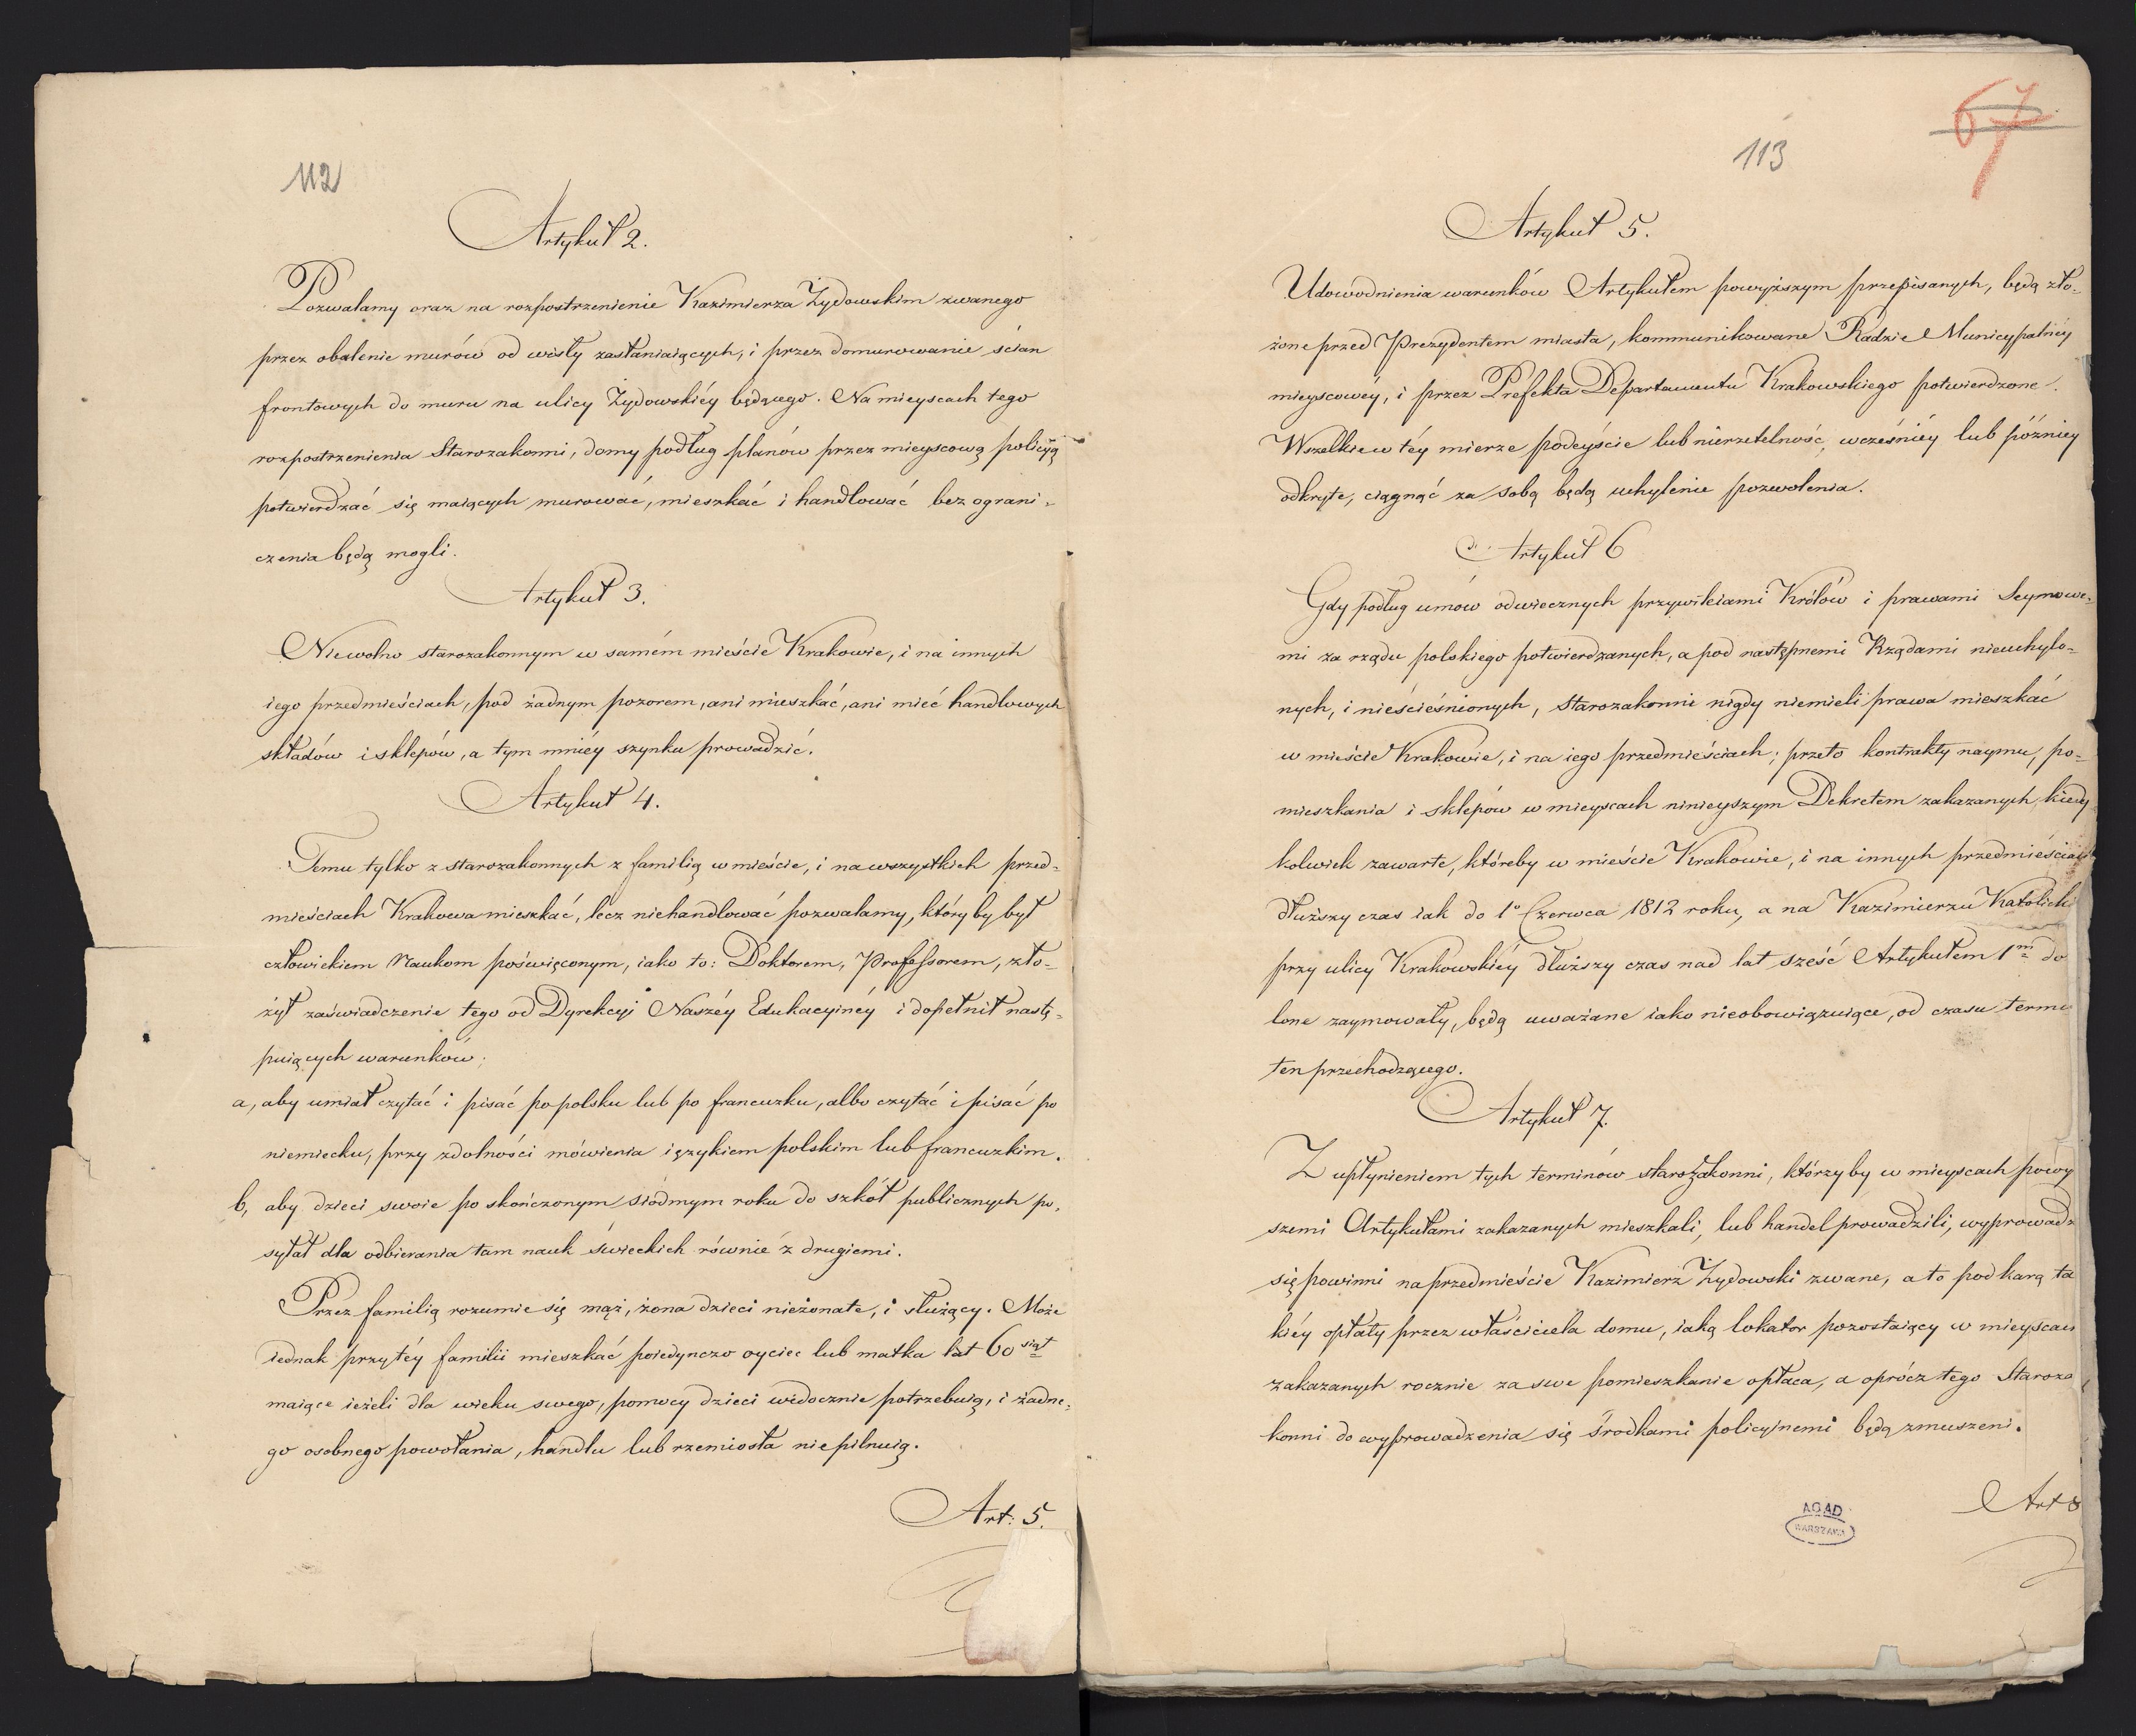 112
Artykuł 2.
Pozwalamy oraz na rozpostrzenienie Kazimierza Żydowskim zwanego
przez obalenie murów od wisły zasłaniaiących, i przez domurowanie ścian
frontowych do muru na ulicy Żydowskiéy będącego. Na mieyscach tego
rozpostrzenienia Starozakonni, domy podług planów przez mieyscową policyą
potwierdzać się maiących murować, mieszkać i handlować bez ograni-
czenia będą mogli.
Artykuł 3.
Niewolno starozakonnym w samém mieście Krakowie, i na innych
iego przedmieściach, pod żadnym pozorem, ani mieszkać, ani mieć handlowych
składów i sklepów, a tym mniéy szynku prowadzić.
Artykuł 4.
Temu tylko z starozakonnych z familią w mieście, i na wszystkich przed-
mieściach Krakowa mieszkać, lecz niehandlować pozwalamy, któryby był
człowiekiem Naukom poświęconym, iako to: Doktorem, Professorem, zło-
żył zaświadczenie tego od Dyrekcyi Naszéy Edukacyinéy i dopełnił nastę-
puiących warunków;
a, aby umiał czytać i pisać po polsku lub po francuzku, albo czytać i pisać po
niemiecku, przy zdolności mówienia ięzykiem polskim lub francuzkim.
b, aby dzieci swoie po skończonym siódmym roku do szkół publicznych po-
syłał dla odbierania tam nauk świeckich równie z drugiemi.
Przez familią rozumie się mąż, żona dzieci nieżonate, i służący. Może
iednak przy téy familii mieszkać poiedynczo oyciec lub matka lat 60siąt
maiące ieżeli dla wieku swego, pomocy dzieci widocznie potrzebuią, i żadne-
go osobnego powołania, handlu lub rzemiosła nie pilnuią.
Art: 5.
67
113
Artykuł 5.
Udowodnienia warunków Artykułem powyższym przepisanych, będą zło-
żone przed Prezydentem miasta, kommunikowane Radzie Municypalnéy
mieyscowéy, i przez Prefekta Departamentu Krakowskiego potwierdzone.
Wszelkie w téy mierze podeyście lub nierzetelność, wcześniéy lub późniey
odkryte, ciągnąć za sobą będą uchylenie pozwolenia.
Artykuł 6
Gdy podług umów odwiecznych przywileiami Królów i prawami Seymowe-
mi za rządu polskiego potwierdzanych, a pod następnemi Rządami nieuchylo-
nych, i nieścieśnionych, starozakonni nigdy niemieli prawa mieszkać
w mieście Krakowie, i na iego przedmieściach; przeto kontrakty naymu, po-
mieszkania i sklepów w mieyscach ninieyszym Dekretem zakazanych, kiedy
kolwiek zawarte, któreby w mieście Krakowie, i na innych przedmieściach
dłuższy czas iak do 1o Czerwca 1812 roku, a na Kazimierzu Katolicki
przy ulicy Krakowskiéy dłuższy czas nad lat sześć Artykułem 1m do
lone zaymowały, będą uważane iako nieobowiązuiące, od czasu termi
ten przechodzącego.
Artykuł 7.
Z upłynieniem tych terminów starozakonni, którzyby w mieyscach powy
szemi Artykułami zakazanych mieszkali, lub handel prowadzili, wyprowadz
się powinni na przedmieście Kazimierz Żydowski zwane, a to pod karą ta
kiéy opłaty przez właściciela domu, iaką lokator pozostaiący w mieyscach
zakazanych rocznie za swe pomieszkanie opłaca, a oprócz tego Staroza
konni do wyprowadzenia się środkami policyjnemi będą zmuszeni.
Art 8
AGAD
WARSZAWA